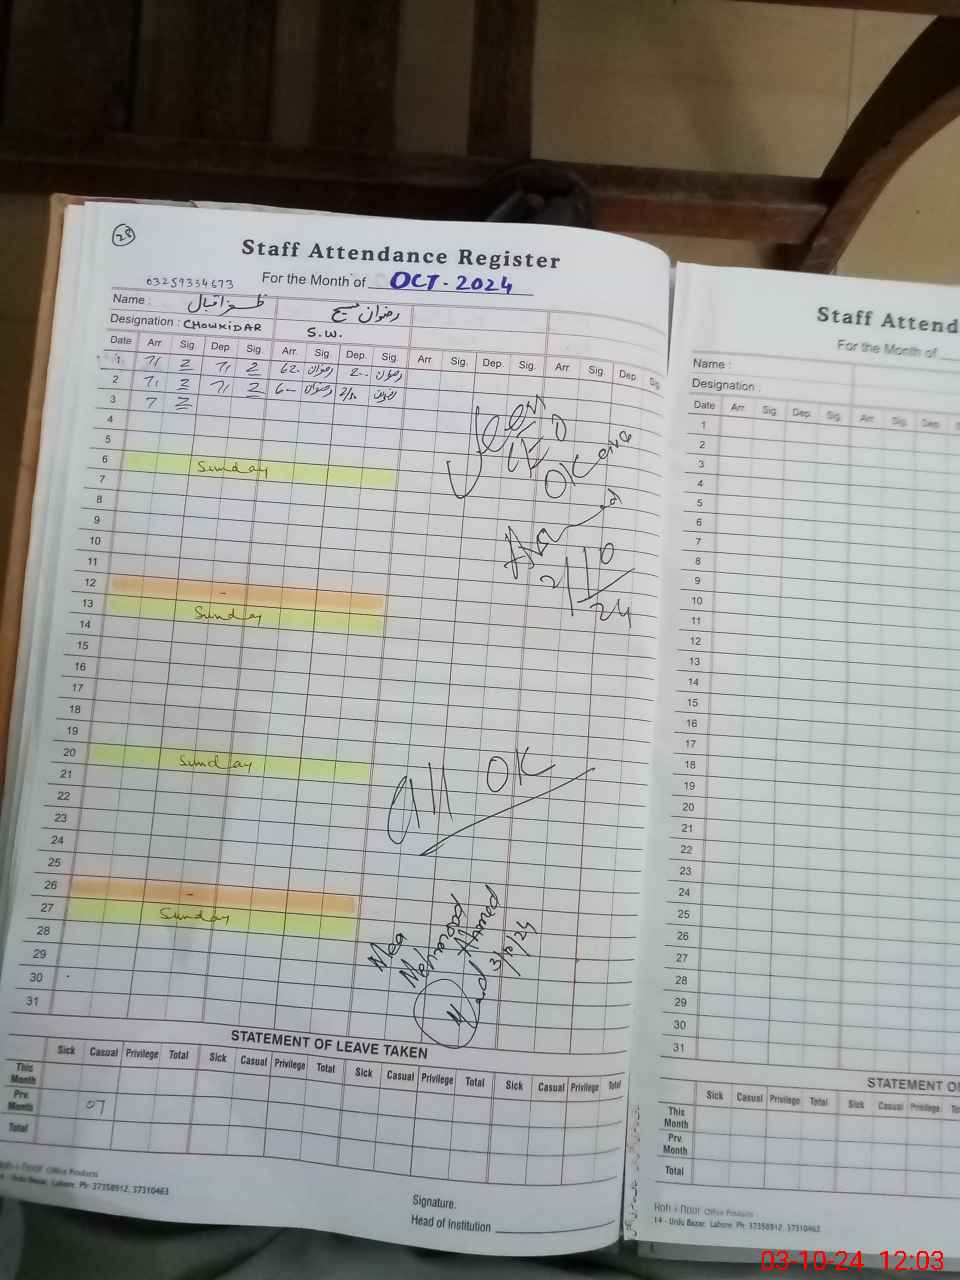 28
Staff Attendance Register
For the Month of OCT - 2024
03259334673
Name : ظفر اقبال رضوان مسیح
Designation : CHOWKIDAR S.W.
Date Arr Sig. Dep. Sig. Arr. Sig. Dep. Sig. Arr Sig. Dep. Sig. Arr. Sig. Dep. Sig.
1 7/1 7/1 رضوان رضوان
2 7/1 7/1 رضوان
3 7
4
5
6 Sunday
7
8
9
10
11
12 -
13 Sunday
14
15
16
17
18
19
20 Sunday
21
22
23
24
25
26 -
27 Sunday
28
29
30
31
Seen
OK
2/10/24
all OK
Mea
Mehmood
Ahmed
3/10/24
STATEMENT OF LEAVE TAKEN
Sick Casual Privilege Total Sick Casual Privilege Total Sick Casual Privilege Total Sick Casual Privilege Total
This Month
Prv. Month 07
Total
Signature.
Head of Institution
Office Products
Urdu Bazar, Lahore. Ph: 37358912, 37310463
Staff Attend
For the Month of
Name :
Designation :
Date Arr. Sig. Dep. Sig. Arr. Sig. Dep.
1
2
3
4
5
6
7
8
9
10
11
12
13
14
15
16
17
18
19
20
21
22
23
24
25
26
27
28
29
30
31
STATEMENT O
Sick Casual Privilege Total Sick Casual Privilege Total
This Month
Prv. Month
Total
Koh i Noor Office Products
14 - Urdu Bazar, Lahore. Ph: 37358912, 37310463
03-10-24 12:03